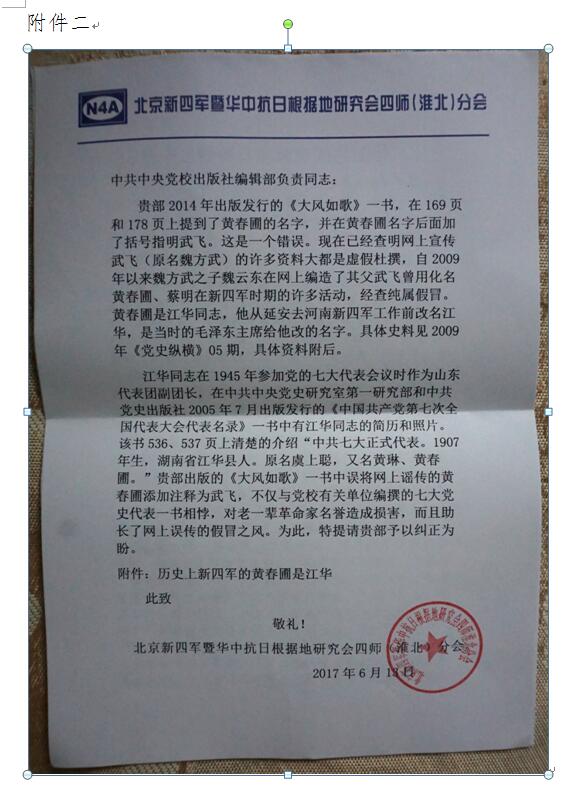 附件二
N4A 北京新四军暨华中抗日根据地研究会四师(淮北)分会
中共中央党校出版社编辑部负责同志：
贵部 2014 年出版发行的《大风如歌》一书，在 169 页
和 178 页上提到了黄春圃的名字，并在黄春圃名字后面加
了括号指明武飞。这是一个错误。现在已经查明网上宣传
武飞（原名魏方武）的许多资料大都是虚假杜撰，自 2009
年以来魏方武之子魏云东在网上编造了其父武飞曾用化名
黄春圃、蔡明在新四军时期的许多活动，经查纯属假冒。
黄春圃是江华同志，他从延安去河南新四军工作前改名江
华，是当时的毛泽东主席给他改的名字。具体史料见 2009
年《党史纵横》05 期，具体资料附后。
江华同志在 1945 年参加党的七大代表会议时作为山东
代表团副团长，在中共中央党史研究室第一研究部和中共
党史出版社 2005 年 7 月出版发行的《中国共产党第七次全
国代表大会代表名录》一书中有江华同志的简历和照片。
该书 536、537 页上清楚的介绍“中共七大正式代表。1907
年生，湖南省江华县人。原名虞上聪，又名黄琳、黄春
圃。”贵部出版的《大风如歌》一书中误将网上谣传的黄
春圃添加注释为武飞，不仅与党校有关单位编撰的七大党
史代表一书相悖，对老一辈革命家名誉造成损害，而且助
长了网上误传的假冒之风。为此，特提请贵部予以纠正为
盼。
附件：历史上新四军的黄春圃是江华
此致
敬礼！
北京新四军暨华中抗日根据地研究会四师（淮北）分会
2017 年 6 月 13 日